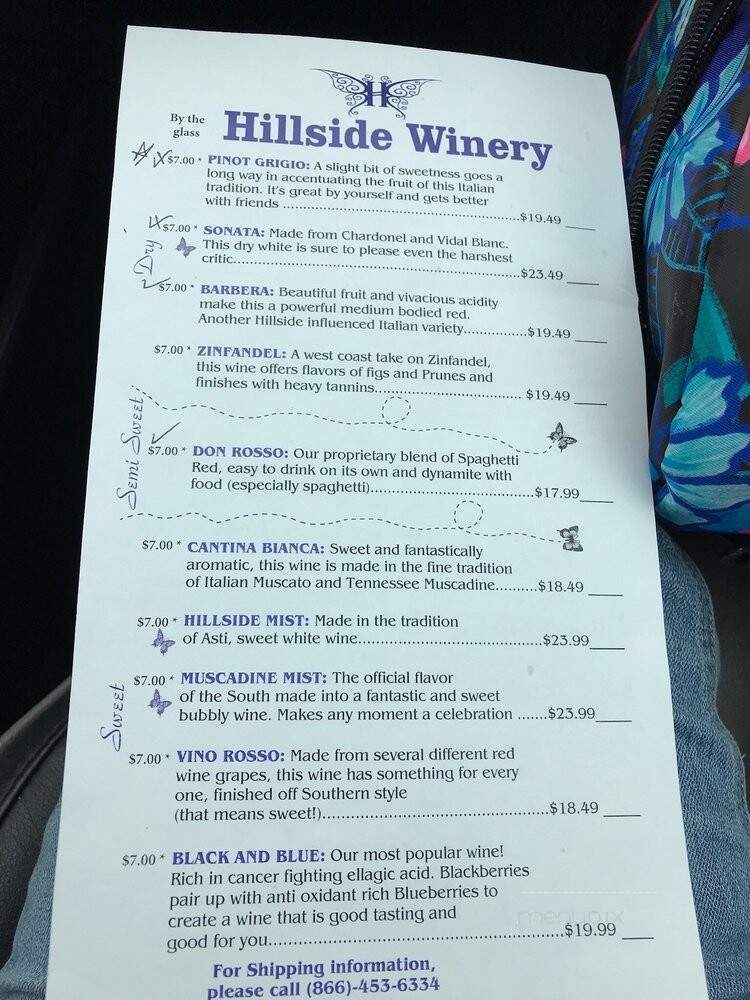 H
By the
glass
Hillside Winery
$7.00 * PINOT GRIGIO: A slight bit of sweetness goes a
long way in accentuating the fruit of this Italian
tradition. It's great by yourself and gets better
with friends ..............................................$19.49 ____
Dry
$7.00 * SONATA: Made from Chardonel and Vidal Blanc.
This dry white is sure to please even the harshest
critic..........................................................$23.49 ____
$7.00 * BARBERA: Beautiful fruit and vivacious acidity
make this a powerful medium bodied red.
Another Hillside influenced Italian variety.............$19.49 ____
$7.00 * ZINFANDEL: A west coast take on Zinfandel,
this wine offers flavors of figs and Prunes and
finishes with heavy tannins.............................. $19.49 ____
Semi Sweet
$7.00 * DON ROSSO: Our proprietary blend of Spaghetti
Red, easy to drink on its own and dynamite with
food (especially spaghetti)................................$17.99 ____
Sweet
$7.00 * CANTINA BIANCA: Sweet and fantastically
aromatic, this wine is made in the fine tradition
of Italian Muscato and Tennessee Muscadine.........$18.49 ____
$7.00 * HILLSIDE MIST: Made in the tradition
of Asti, sweet white wine...................................$23.99____
$7.00 * MUSCADINE MIST: The official flavor
of the South made into a fantastic and sweet
bubbly wine. Makes any moment a celebration .......$23.99____
$7.00 * VINO ROSSO: Made from several different red
wine grapes, this wine has something for every
one, finished off Southern style
(that means sweet!)..........................................$18.49 ____
$7.00 * BLACK AND BLUE: Our most popular wine!
Rich in cancer fighting ellagic acid. Blackberries
pair up with anti oxidant rich Blueberries to
create a wine that is good tasting and
good for you......................................................$19.99 ____
For Shipping information,
please call (866)-453-6334